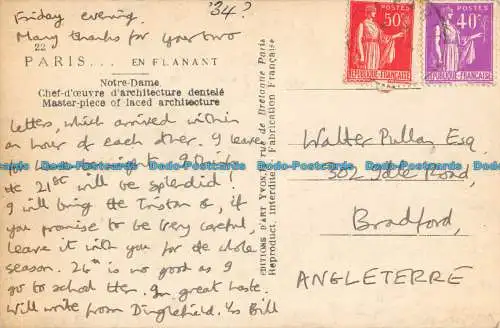 Friday evening. '34?
Many thanks for your two
22
PARIS... EN FLANANT
Notre-Dame.
Chef-d'œuvre d'architecture dentelé
Master-piece of laced architecture
letters, which arrived within
an hour of each other. I leave
the 21st will be splendid!
I will bring the Tristan &, if
you promise to be very careful,
leave it with you for the whole
season. 26th is no good as I
go to school then. In great haste.
Will write from Dinglefield. Yrs Bill
EDITIONS D'ART YVON, rue de Bretagne Paris
Reproduct. interdite Fabrication Française
POSTES
50c
REPUBLIQUE FRANÇAISE
POSTES
40c
REPUBLIQUE FRANÇAISE
Walter Pullan Esq.
302 Idle Road,
Bradford,
ANGLETERRE
Dodo-Postcards Dodo-Postcards Dodo-Postcards Dodo-Postcards Dodo-Postcards